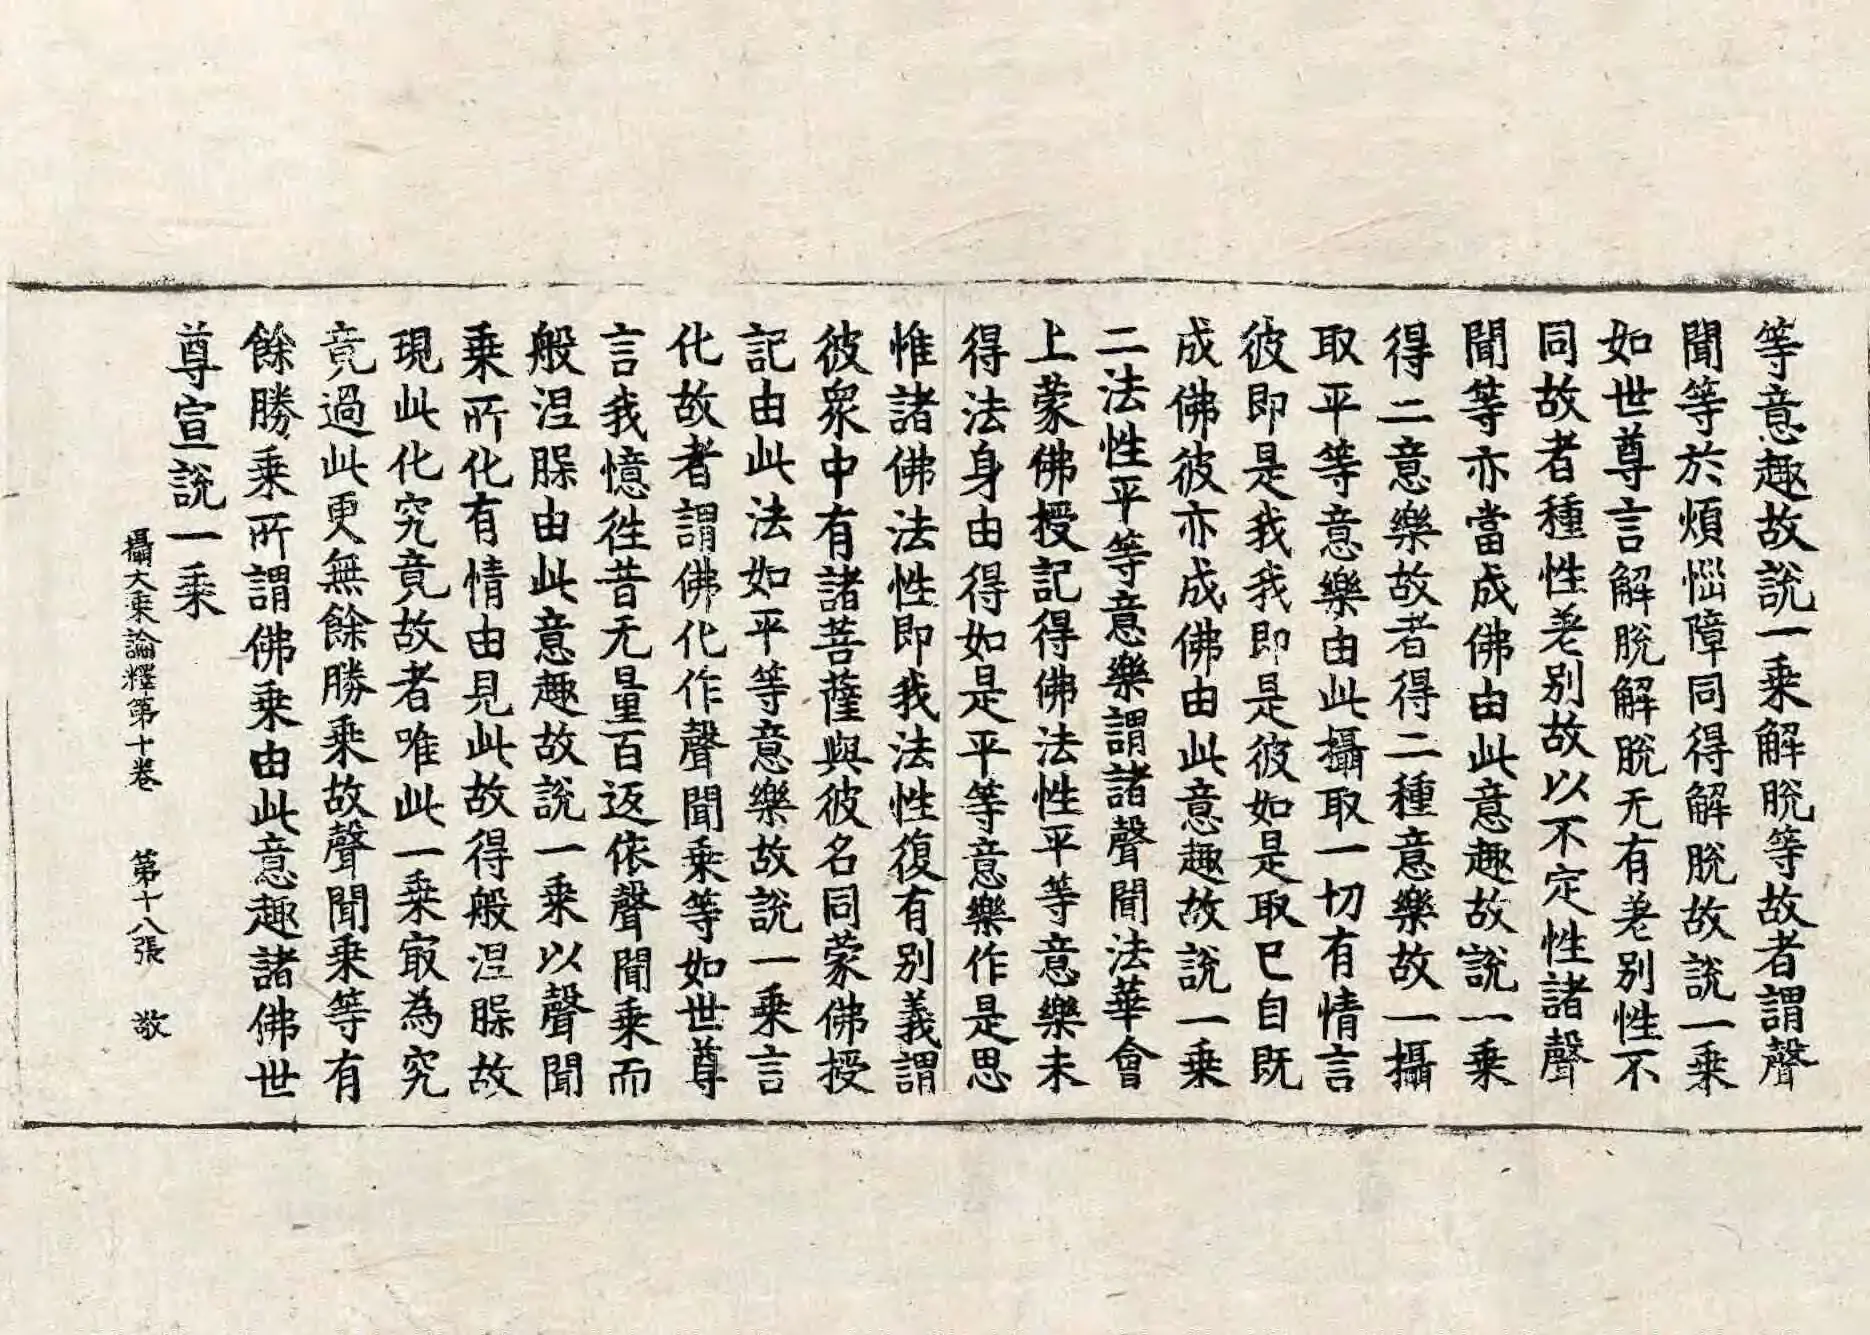 等意趣故說一乘解脫等故者謂聲
聞等於煩惱障同得解脫故說一乘
如世尊言解脫解脫无有差別性不
同故者種性差別故以不定性諸聲
聞等亦當成佛由此意趣故說一乘
得二意樂故者得二種意樂故一攝
取平等意樂由此攝取一切有情言
彼即是我我即是彼如是取已自既
成佛彼亦成佛由此意趣故說一乘
二法性平等意樂謂諸聲聞法華會
上蒙佛授記得佛法性平等意樂未
得法身由得如是平等意樂作是思
惟諸佛法性即我法性復有別義謂
彼衆中有諸菩薩與彼名同蒙佛授
記由此法如平等意樂故說一乘言
化故者謂佛化作聲聞乘等如世尊
言我憶往昔无量百返依聲聞乘而
般涅槃由此意趣故說一乘以聲聞
乘所化有情由見此故得般涅槃故
現此化究竟故者唯此一乘冣為究
竟過此更無餘勝乘故聲聞乘等有
餘勝乘所謂佛乘由此意趣諸佛世
尊宣說一乘
攝大乘論釋第十卷　第十八張　敬